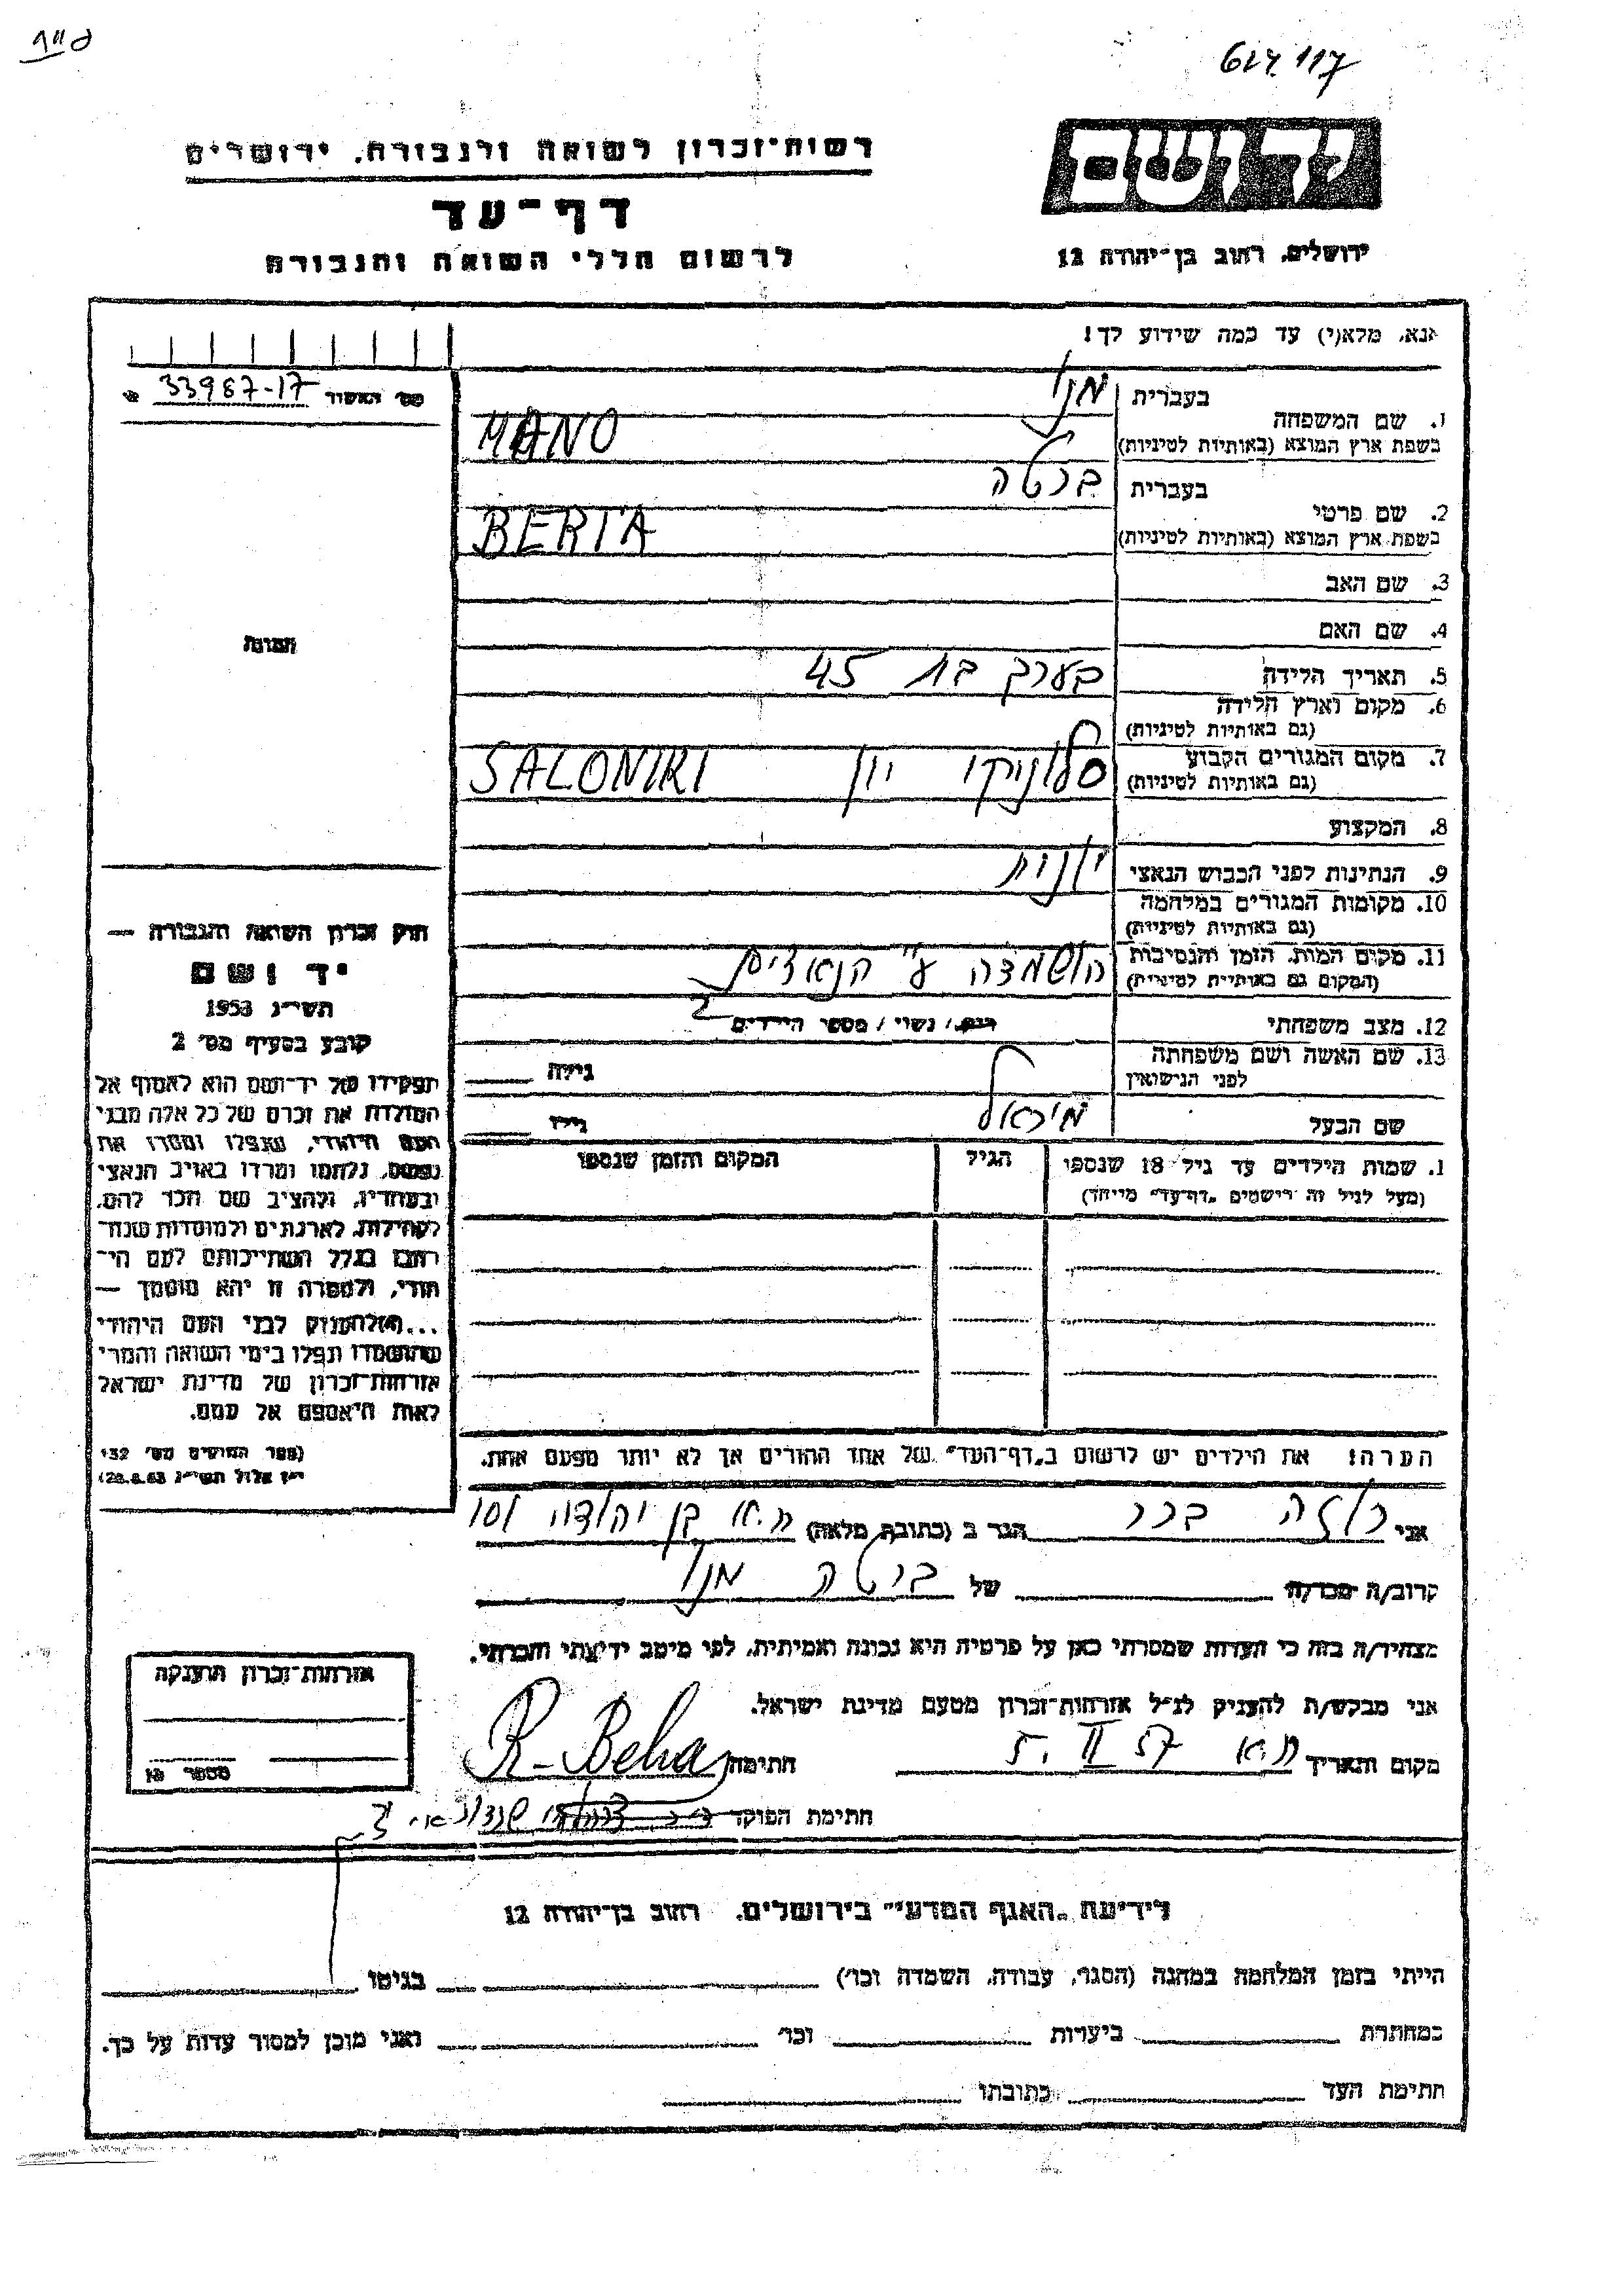 617 117
יד ושם
רשות־זכרון לשואה ולגבורה, ירושלים
דף־עד
לרשום חללי השואה והגבורה
ירושלים, רחוב בן־יהודה 12
אנא, מלא(י) עד כמה שידוע לך!
מס' האשור 33987-17
1. שם המשפחה
בעברית מנו
בשפת ארץ המוצא (באותיות לטיניות) MANO
2. שם פרטי
בעברית ברטה
בשפת ארץ המוצא (באותיות לטיניות) BERTA
3. שם האב
4. שם האם
תמונה
5. תאריך הלידה בערך בת 45
6. מקום וארץ הלידה
(גם באותיות לטיניות)
7. מקום המגורים הקבוע סלוניקי יון SALONIKI
(גם באותיות לטיניות)
8. המקצוע
9. הנתינות לפני הכבוש הנאצי יונית
10. מקומות המגורים במלחמה
(גם באותיות לטיניות)
11. מקום המות, הזמן והנסיבות הושמדה ע"י הנאצים
(המקום גם באותיות לטיניות)
12. מצב משפחתי רווק / נשוי / מספר הילדים 2
13. שם האשה ושם משפחתה
לפני הנישואין
גילה
שם הבעל מיכאל
גילו
חוק זכרון השואה והגבורה —
יד ושם
תשי״ג 1953
קובע בסעיף מס' 2
תפקידו של יד־ושם הוא לאסוף אל
המולדת את זכרם של כל אלה מבני
העם היהודי, שנפלו ומסרו את
נפשם, נלחמו ומרדו באויב הנאצי
ובעוזריו, ולהציב שם וזכר להם,
לקהילות, לארגונים ולמוסדות שנח־
רבו בגלל השתייכותם לעם הי־
הודי, ולמטרה זו יהא מוסמך —
...(ו) להעניק לבני העם היהודי
שהושמדו ונפלו בימי השואה והמרי
אזרחות־זכרון של מדינת ישראל
לאות היאספם אל עמם.
(ספר החוקים מס' 132
י״ז אלול תשי״ג 28.8.53)
1. שמות הילדים עד גיל 18 שנספו
(מעל לגיל זה רישמים „דף־עד״ מיוחד)
הגיל
המקום והזמן שנספו
הערה! את הילדים יש לרשום ב„דף־העד״ של אחד ההורים אך לא יותר מפעם אחת.
אני רוזה בכר הגר ב (כתובת מלאה) ת.א בן יהודה 101
קרוב/ה מכר/ה של ברטה מנו
מצהיר/ה בזה כי העדות שמסרתי כאן על פרטיה היא נכונה ואמיתית, לפי מיטב ידיעתי והכרתי.
אני מבקש/ת להעניק לנ״ל אזרחות־זכרון מטעם מדינת ישראל.
מקום ותאריך ת.א 5. II 57 חתימה R-Behar
חתימת הפוקד
אזרחות־זכרון הוענקה
מספר
לידיעת „האגף המדעי״ בירושלים, רחוב בן־יהודה 12
הייתי בזמן המלחמה במחנה (הסגר, עבודה, השמדה וכו') בגיטו
במחתרת ביערות וכו' ואני מוכן למסור עדות על כך.
חתימת העד כתובתו